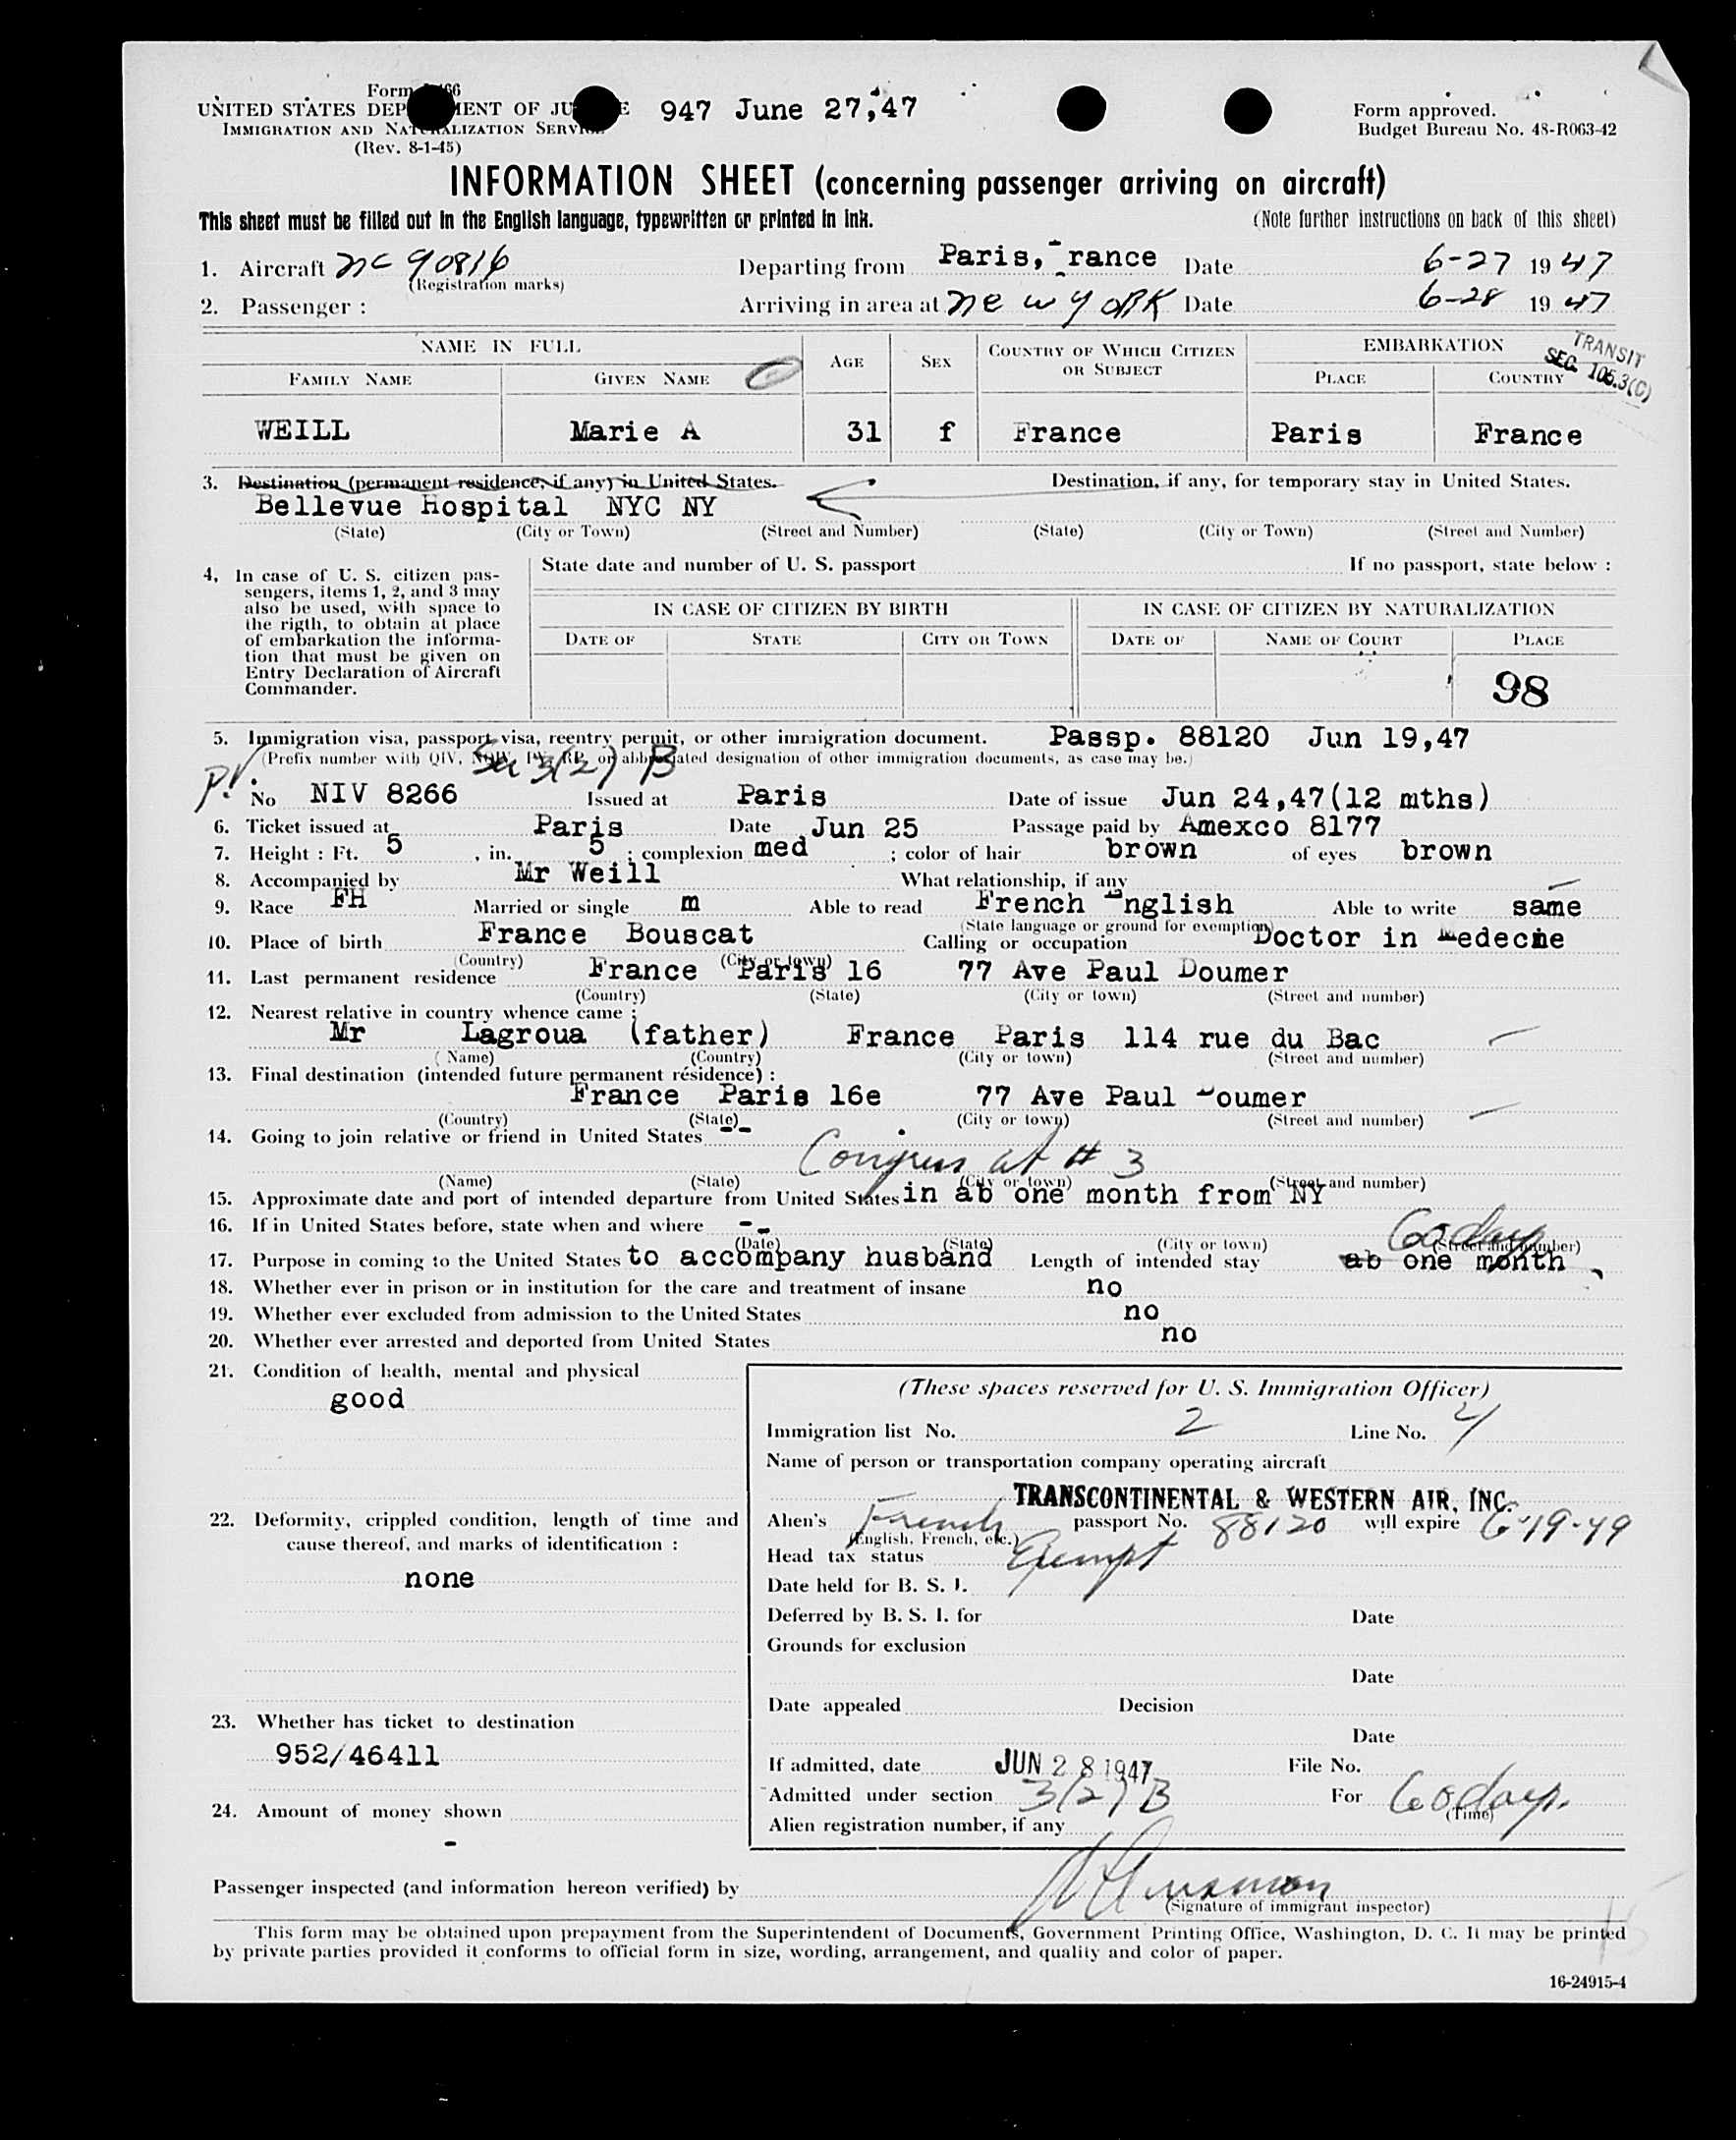 Form
UNITED STATES DEP MENT OF JU E 947 June 27,47 Form approved.
IMMIGRATION AND NATURALIZATION SERVICE Budget Bureau No. 43-R063-42
(Rev. 8-1-45)
INFORMATION SHEET (concerning passenger arriving on aircraft)
This sheet must be filled out in the English language, typewritten or printed in ink. (Note further instructions on back of this sheet)
1. Aircraft NC 90816 Departing from Paris, France Date 6-27 19 47
(Registration marks)
2. Passenger : Arriving in area at NEW YORK Date 6-28 19 47
NAME IN FULL AGE SEX COUNTRY OF WHICH CITIZEN OR SUBJECT EMBARKATION TRANSIT SEC. 105.3(C)
FAMILY NAME GIVEN NAME PLACE COUNTRY
WEILL Marie A 31 f France Paris France
3. Destination (permanent residence, if any) in United States. Destination, if any, for temporary stay in United States.
Bellevue Hospital NYC NY
(State) (City or Town) (Street and Number) (State) (City or Town) (Street and Number)
4, In case of U. S. citizen pas-
sengers, items 1, 2, and 3 may
also be used, with space to
the rigth, to obtain at place
of embarkation the informa-
tion that must be given on
Entry Declaration of Aircraft
Commander.
State date and number of U. S. passport If no passport, state below :
IN CASE OF CITIZEN BY BIRTH IN CASE OF CITIZEN BY NATURALIZATION
DATE OF STATE CITY OR TOWN DATE OF NAME OF COURT PLACE
98
5. Immigration visa, passport visa, reentry permit, or other immigration document. Passp. 88120 Jun 19,47
(Prefix number with QIV, NQIV, PV, RP, or abbreviated designation of other immigration documents, as case may be.)
P.V. Sec 3(2) B
No NIV 8266 Issued at Paris Date of issue Jun 24,47(12 mths)
6. Ticket issued at Paris Date Jun 25 Passage paid by Amexco 8177
7. Height : Ft. 5 , in. 5 ; complexion med ; color of hair brown of eyes brown
8. Accompanied by Mr Weill What relationship, if any
9. Race FH Married or single m Able to read French English Able to write same
(State language or ground for exemption)
10. Place of birth France Bouscat Calling or occupation Doctor in Medecine
(Country) (City or town)
11. Last permanent residence France Paris 16 77 Ave Paul Doumer
(Country) (State) (City or town) (Street and number)
12. Nearest relative in country whence came :
Mr Lagroua (father) France Paris 114 rue du Bac
(Name) (Country) (City or town) (Street and number)
13. Final destination (intended future permanent résidence) :
France Paris 16e 77 Ave Paul Doumer
(Country) (State) (City or town) (Street and number)
14. Going to join relative or friend in United States --
Congress at # 3
(Name) (State) (City or town) (Street and number)
15. Approximate date and port of intended departure from United States in ab one month from NY
16. If in United States before, state when and where --
(Date) (State) (City or town) (Street and number)
60 days
17. Purpose in coming to the United States to accompany husband Length of intended stay ab one month
18. Whether ever in prison or in institution for the care and treatment of insane no
19. Whether ever excluded from admission to the United States no
20. Whether ever arrested and deported from United States no
21. Condition of health, mental and physical
good
22. Deformity, crippled condition, length of time and
cause thereof, and marks of identification :
none
23. Whether has ticket to destination
952/46411
24. Amount of money shown
-
(These spaces reserved for U. S. Immigration Officer)
Immigration list No. 2 Line No. 4
Name of person or transportation company operating aircraft
TRANSCONTINENTAL & WESTERN AIR, INC.
Alien's French passport No. 88120 will expire 6-19-49
(English, French, etc.)
Head tax status Exempt
Date held for B. S. I.
Deferred by B. S. I. for Date
Grounds for exclusion
Date
Date appealed Decision
Date
If admitted, date JUN 28 1947 File No.
Admitted under section 3(2) B For 60 days.
(Time)
Alien registration number, if any
Passenger inspected (and information hereon verified) by
(Signature of immigrant inspector)
This form may be obtained upon prepayment from the Superintendent of Documents, Government Printing Office, Washington, D. C. It may be printed
by private parties provided it conforms to official form in size, wording, arrangement, and quality and color of paper.
16-24915-4